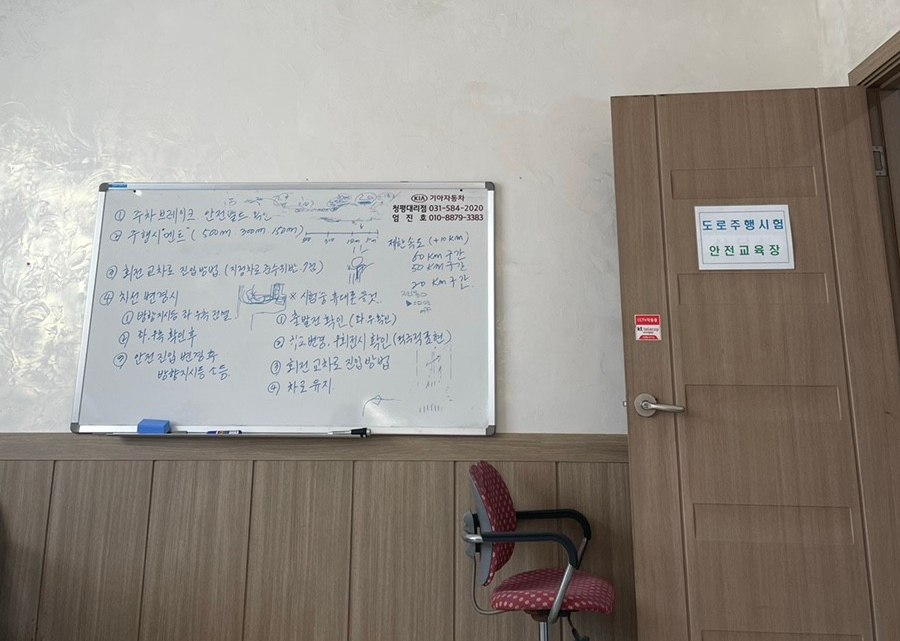 KIA 기아자동차
청평대리점 031-584-2020
엄 진 호 010-8879-3383
① 주차브레이크 안전벨트 확인
② 주행시 "멘트" (500m 300m 150m)
③ 회전 교차로 진입방법 (지정차로 준수위반 7점)
④ 차선 변경시
① 방향지시등 좌 우측
② 좌.우측 확인 후
③ 안전 진입 변경 후
방향지시등 소등.
제한속도 (+10 Km)
60 Km 구간
50 Km 구간
20 Km 구간.
※ 시험중 휴대폰 끌것.
① 출발전 확인 (좌우확인)
② 변경, 우회전시 확인
③ 회전 교차로 진입방법
④ 차로 유지
도로주행시험
안전교육장
kt telecop